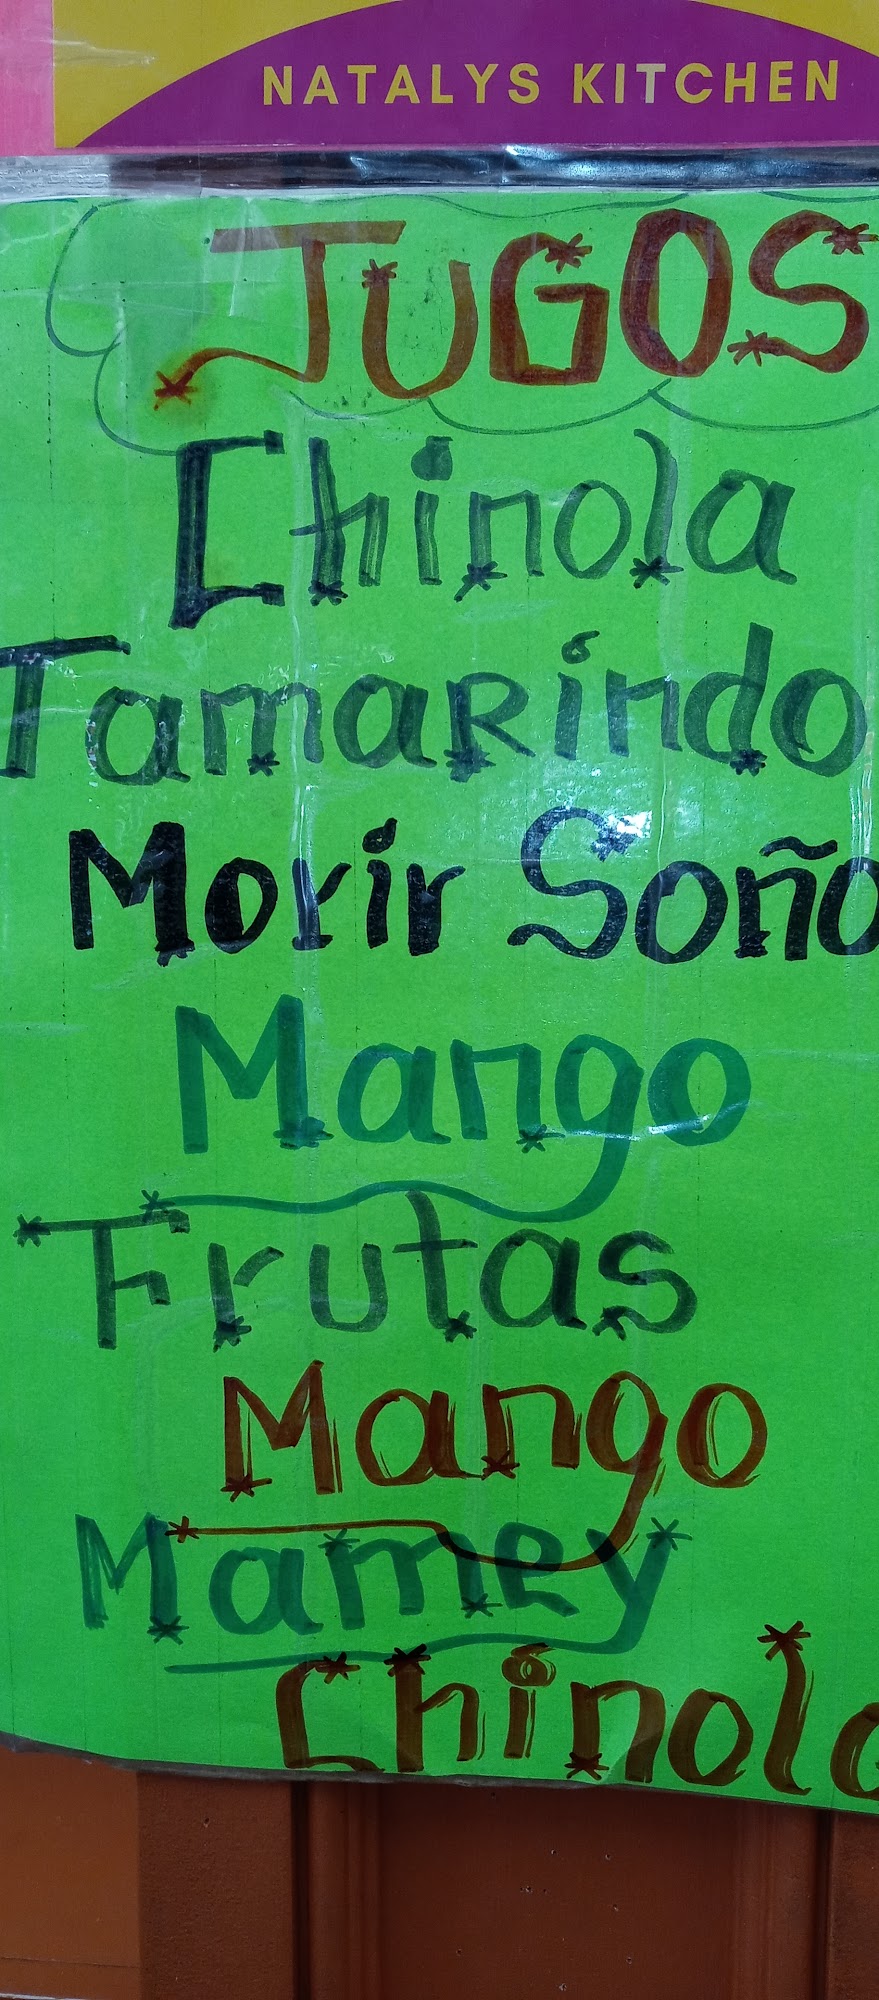 NATALYS KITCHEN
JUGOS
Chinola
TamaRindo
Morir Soño
Mango
Frutas
Mango
Mamey
Chinola